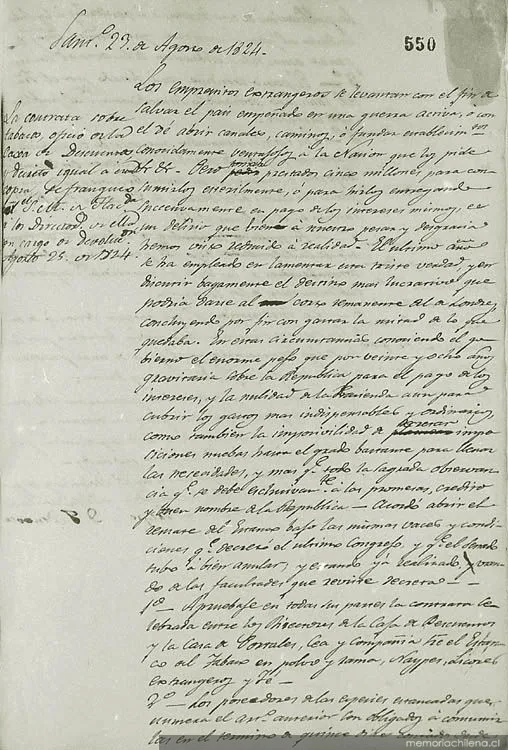 550
Sant.º 23. de Agosto de 1824.
Los Emprestitos extrangeros se levantan con el fin de
salvar el pais empeñado en una guerra activa, ó con
el de abrir canales, caminos, ó fundar establecim.tos
conocidamente ventajosos á la Nacion que los pide
Pero prestados cinco millones, para con-
sumirlos esterilmente, ó para irlos entregando
sucesivamente en pago de los intereses mismos, es
un delirio que á nuestro pesar y desgracia
hemos visto reducido á realidad. El ultimo año
se ha empleado en lamentar esta triste verdad, y en
discurrir bagamente el destino mas lucrativo que
podria darse al corto remanente del de Londres,
concluyendo por fin con gastar la mitad de lo que
quedaba. En estas circunstancias, conociendo el go-
bierno el enorme peso que por veinte y ocho años
gravitaria sobre la Republica para el pago de los
intereses, y la nulidad de la Hacienda aun para
cubrir los gastos mas indispensables y ordinarios,
como tambien la imposivilidad de decretar impo-
siciones nuebas hasta el grado bastante para llenar
las necesidades, y mas q.e todo la sagrada observan-
cia q.e se debe esclusivam.te á las promesas, credito
y buen nombre de la Republica — Acordó abrir el
remate del Estanco bajo las mismas vases y condi-
ciones q.e decretó el ultimo Congreso, y q.e el Senado
tubo á bien anular, y estando yá realizado, y usan-
do de las facultades que reviste decreta —
1.º — Apruebase en todas sus partes la contrata ce-
lebrada entre los Directores de la Caja de Descuentos
y la Casa de Portales, Cea y Compañia sre el Estan-
co del tabaco en polvo y rama, Naypes, Licores
extrangeros y Té —
2.º — Los poseedores de las especies estancadas que
numera el art.º anterior son obligados á
en el termino de quince dias
La contrata sobre
tabaco, oficio de la
Caxa de Descuentos
y Decreto igual á
copia se franqueó
á los Director.s
en cargo de devolucion
Agosto 25. de 1824.
memoriachilena.cl